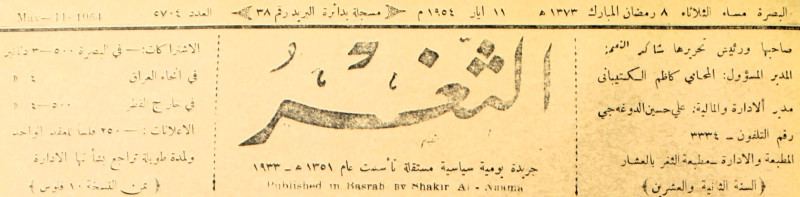 البصرة مساء الثلاثاء ٨ رمضان المبارك ١٣٧٣ ھ ١١ ايار ١٩٥٤ م مسجلة بدائرة البريد رقم ٣٨ العدد ٥٧٠٤ May - 11 - 1954
صاحبها ورئيس تحريرها شاكر النعمة
المدير المسؤول: المحامي كاظم الكشيباني
مدير الادارة والمالية: علي حسين الدوغه جي
رقم التلفون - ٣٣٣٤
المطبعة والادارة - مطبعة الثغر بالعشار
( السنة الثانية والعشرين )
الثغر
جريدة يومية سياسية مستقلة تأسست عام ١٣٥١ ھ - ١٩٣٣
Published in Basrah By Shakir Al - Naama
الاشتراكات: - في البصرة ٥٠٠ - ٣ دنانير
في انحاء العراق ٤
في خارج القطر ٥٠٠ - ٤
الاعلانات: - ٢٥٠ فلسا للعقد الواحد
ولمدة طويلة تراجع بشأنها الادارة
( ثمن النسخة ١٠ فلوس )